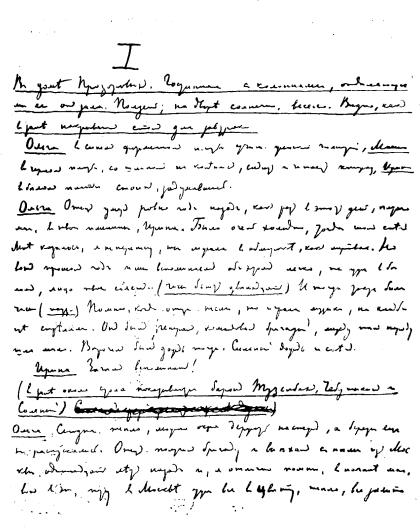 I
Въ домѣ Прозоровыхъ. Гостиная съ колоннами, отдѣляющими
ее отъ залы. Полдень; на дворѣ солнечно, весело. Видно, какъ
въ залѣ накрываютъ столъ для завтрака.
Ольга въ синемъ форменномъ платьѣ учит. женской гимназіи, Маша
въ черномъ платьѣ, со шляпкой на колѣняхъ, сидитъ и читаетъ книжку, Ирина
въ бѣломъ платьѣ стоитъ, задумавшись.
Ольга. Отецъ умеръ ровно годъ назадъ, какъ разъ въ этотъ день, пятаго
мая, въ твои именины, Ирина. Было очень холодно, тогда шелъ снѣгъ.
Мнѣ казалось, я не переживу, ты лежала въ обморокѣ, какъ мертвая. Но
вотъ прошелъ годъ и мы вспоминаемъ объ этомъ легко, ты уже въ бѣ-
ломъ, лицо твое сіяетъ. (Часы бьютъ двѣнадцать) И тогда также били
часы. (пауза) Помню, когда отца несли, то играла музыка, на кладби-
щѣ стрѣляли. Онъ былъ генералъ, командовалъ бригадой, между тѣмъ народу
шло мало. Впрочемъ, былъ дождь тогда. Сильный дождь и снѣгъ.
Ирина. Зачѣмъ вспоминать!
(Въ залѣ около стола показываются баронъ Тузенбахъ, Чебутыкинъ и
Соленый)
Ольга. Сегодня тепло, можно окна держать настежь, а березы еще
не распускались. Отецъ получилъ бригаду и выѣхалъ съ нами изъ Мос-
квы одиннадцать лѣтъ назадъ и, я отлично помню, въ началѣ мая,
вотъ въ эту пору въ Москвѣ уже все въ цвѣту, тепло, все залито